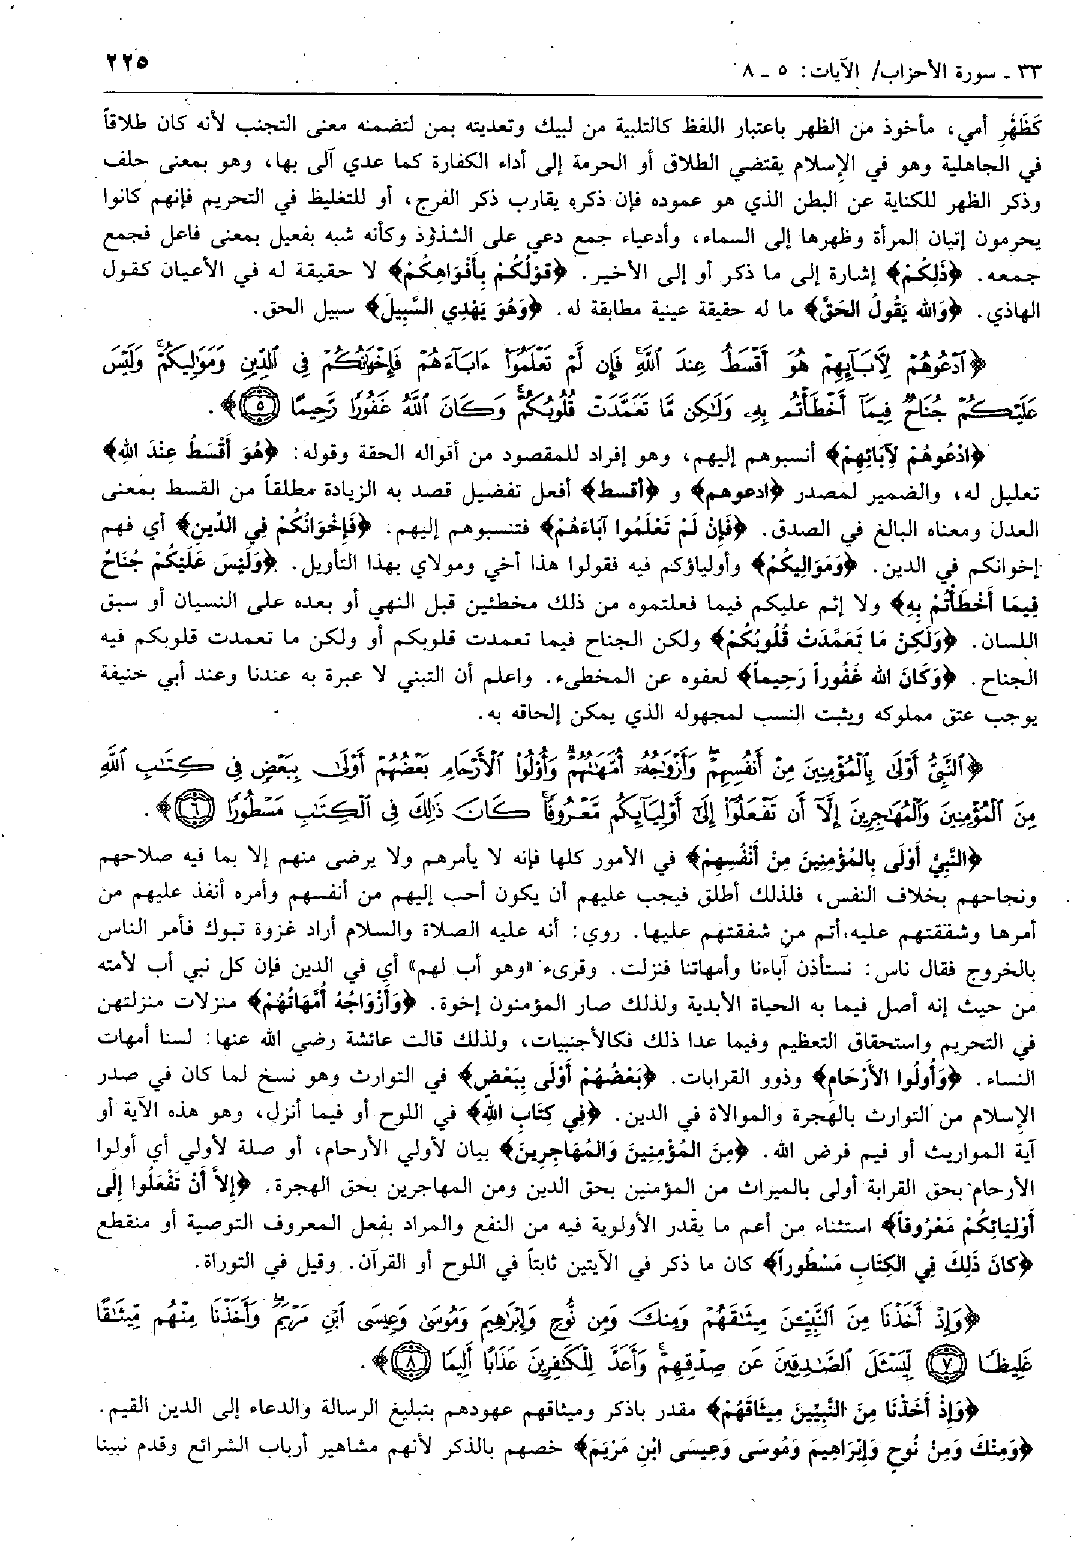 ٣٣ ـ سورة الأحزاب/ الآيات: ٥ ـ ٨ ٢٢٥
كَظَهْرِ أمي، مأخوذ من الظهر باعتبار اللفظ كالتلبية من لبيك وتعديته بمن لتضمنه معنى التجنب لأنه كان طلاقاً
في الجاهلية وهو في الإسلام يقتضي الطلاق أو الحرمة إلى أداء الكفارة كما عدي آلى بها، وهو بمعنى حلف
وذكر الظهر للكناية عن البطن الذي هو عموده فإن ذكره يقارب ذكر الفرج، أو للتغليظ في التحريم فإنهم كانوا
يحرمون إتيان المرأة وظهرها إلى السماء، وأدعياء جمع دعي على الشذوذ وكأنه شبه بفعيل بمعنى فاعل فجمع
جمعه. ﴿ذَلِكُمْ﴾ إشارة إلى ما ذكر أو إلى الأخير. ﴿قَوْلُكُمْ بِأَفْوَاهِكُمْ﴾ لا حقيقة له في الأعيان كقول
الهاذي. ﴿وَالله يَقُولُ الحَقَّ﴾ ما له حقيقة عينية مطابقة له. ﴿وَهُوَ يَهْدِي السَّبِيلَ﴾ سبيل الحق.
﴿ٱدْعُوهُمْ لِأَبَآئِهِمْ هُوَ أَقْسَطُ عِندَ ٱللَّهِ فَإِن لَّمْ تَعْلَمُوٓا۟ ءَابَآءَهُمْ فَإِخْوَٰنُكُمْ فِى ٱلدِّينِ وَمَوَٰلِيكُمْ وَلَيْسَ
عَلَيْكُمْ جُنَاحٌ فِيمَآ أَخْطَأْتُم بِهِۦ وَلَٰكِن مَّا تَعَمَّدَتْ قُلُوبُكُمْ وَكَانَ ٱللَّهُ غَفُورًا رَّحِيمًا ۝٥﴾.
﴿ادْعُوهُمْ لآبَائِهِمْ﴾ أنسبوهم إليهم، وهو إفراد للمقصود من أقواله الحقة وقوله: ﴿هُوَ أَقْسَطُ عِنْدَ الله﴾
تعليل له، والضمير لمصدر ﴿ادعوهم﴾ و ﴿أقسط﴾ أفعل تفضيل قصد به الزيادة مطلقاً من القسط بمعنى
العدل ومعناه البالغ في الصدق. ﴿فَإِنْ لَمْ تَعْلَمُوا آبَاءَهُمْ﴾ فتنسبوهم إليهم. ﴿فَإِخْوَانُكُمْ فِي الدِّينِ﴾ أي فهم
إخوانكم في الدين. ﴿وَمَوَالِيكُمْ﴾ وأولياؤكم فيه فقولوا هذا أخي ومولاي بهذا التأويل. ﴿وَلَيْسَ عَلَيْكُمْ جُنَاحٌ
فِيمَا أَخْطَأْتُمْ بِهِ﴾ ولا إثم عليكم فيما فعلتموه من ذلك مخطئين قبل النهي أو بعده على النسيان أو سبق
اللسان. ﴿وَلَكِنْ مَا تَعَمَّدَتْ قُلُوبُكُمْ﴾ ولكن الجناح فيما تعمدت قلوبكم أو ولكن ما تعمدت قلوبكم فيه
الجناح. ﴿وَكَانَ الله غَفُوراً رَحِيماً﴾ لعفوه عن المخطىء. واعلم أن التبني لا عبرة به عندنا وعند أبي حنيفة
يوجب عتق مملوكه ويثبت النسب لمجهوله الذي يمكن إلحاقه به.
﴿ٱلنَّبِىُّ أَوْلَىٰ بِٱلْمُؤْمِنِينَ مِنْ أَنفُسِهِمْ وَأَزْوَٰجُهُۥٓ أُمَّهَٰتُهُمْ وَأُو۟لُوا۟ ٱلْأَرْحَامِ بَعْضُهُمْ أَوْلَىٰ بِبَعْضٍ فِى كِتَٰبِ ٱللَّهِ
مِنَ ٱلْمُؤْمِنِينَ وَٱلْمُهَٰجِرِينَ إِلَّآ أَن تَفْعَلُوٓا۟ إِلَىٰٓ أَوْلِيَآئِكُم مَّعْرُوفًا كَانَ ذَٰلِكَ فِى ٱلْكِتَٰبِ مَسْطُورًا ۝٦﴾.
﴿النَّبِيُّ أَوْلَى بِالمُؤْمِنِينَ مِنْ أَنْفُسِهِمْ﴾ في الأمور كلها فإنه لا يأمرهم ولا يرضى منهم إلا بما فيه صلاحهم
ونجاحهم بخلاف النفس، فلذلك أطلق فيجب عليهم أن يكون أحب إليهم من أنفسهم وأمره أنفذ عليهم من
أمرها وشفقتهم عليه أتم من شفقتهم عليها. روي: أنه عليه الصلاة والسلام أراد غزوة تبوك فأمر الناس
بالخروج فقال ناس: نستأذن آباءنا وأمهاتنا فنزلت. وقرىء «وهو أب لهم» أي في الدين فإن كل نبي أب لأمته
من حيث إنه أصل فيما به الحياة الأبدية ولذلك صار المؤمنون إخوة. ﴿وَأَزْوَاجُهُ أُمَّهَاتُهُمْ﴾ منزلات منزلتهن
في التحريم واستحقاق التعظيم وفيما عدا ذلك فكالأجنبيات، ولذلك قالت عائشة رضي الله عنها: لسنا أمهات
النساء. ﴿وَأُولُوا الأَرْحَامِ﴾ وذوو القرابات. ﴿بَعْضُهُمْ أَوْلَى بِبَعْضٍ﴾ في التوارث وهو نسخ لما كان في صدر
الإسلام من التوارث بالهجرة والموالاة في الدين. ﴿فِي كِتَابِ اللهِ﴾ في اللوح أو فيما أنزل، وهو هذه الآية أو
آية المواريث أو فيم فرض الله. ﴿مِنَ المُؤْمِنِينَ وَالمُهَاجِرِينَ﴾ بيان لأولي الأرحام، أو صلة لأولي أي أولوا
الأرحام بحق القرابة أولى بالميراث من المؤمنين بحق الدين ومن المهاجرين بحق الهجرة. ﴿إِلاَّ أَنْ تَفْعَلُوا إِلَى
أَوْلِيَائِكُمْ مَعْرُوفاً﴾ استثناء من أعم ما يقدر الأولوية فيه من النفع والمراد بفعل المعروف التوصية أو منقطع
﴿كَانَ ذَلِكَ فِي الكِتَابِ مَسْطُوراً﴾ كان ما ذكر في الآيتين ثابتاً في اللوح أو القرآن. وقيل في التوراة.
﴿وَإِذْ أَخَذْنَا مِنَ ٱلنَّبِيِّۦنَ مِيثَٰقَهُمْ وَمِنكَ وَمِن نُّوحٍ وَإِبْرَٰهِيمَ وَمُوسَىٰ وَعِيسَى ٱبْنِ مَرْيَمَ وَأَخَذْنَا مِنْهُم مِّيثَٰقًا
غَلِيظًا ۝٧ لِّيَسْـَٔلَ ٱلصَّٰدِقِينَ عَن صِدْقِهِمْ وَأَعَدَّ لِلْكَٰفِرِينَ عَذَابًا أَلِيمًا ۝٨﴾.
﴿وَإِذْ أَخَذْنَا مِنَ النَّبِيِّينَ مِيثَاقَهُمْ﴾ مقدر باذكر وميثاقهم عهودهم بتبليغ الرسالة والدعاء إلى الدين القيم.
﴿وَمِنْكَ وَمِنْ نُوحٍ وَإِبْرَاهِيمَ وَمُوسَى وَعِيسَى ابْنِ مَرْيَمَ﴾ خصهم بالذكر لأنهم مشاهير أرباب الشرائع وقدم نبينا